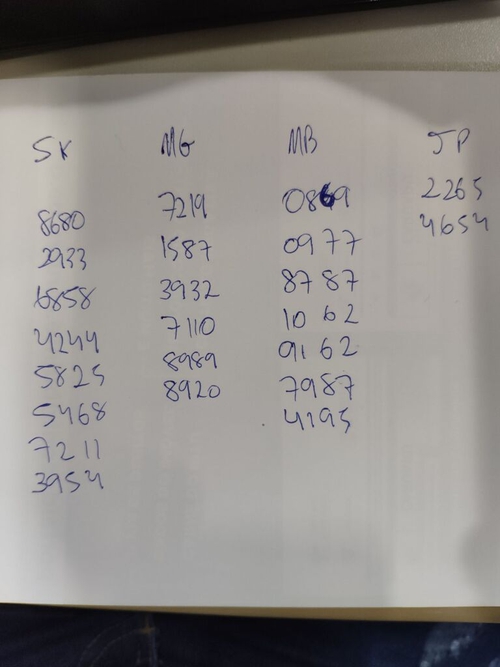 SK MG MB JP
8680 7219 0869 2265
2933 1587 0977 4654
6858 3932 8787
4244 7110 1062
5825 8989 9162
5468 8920 7987
7211 4195
3954